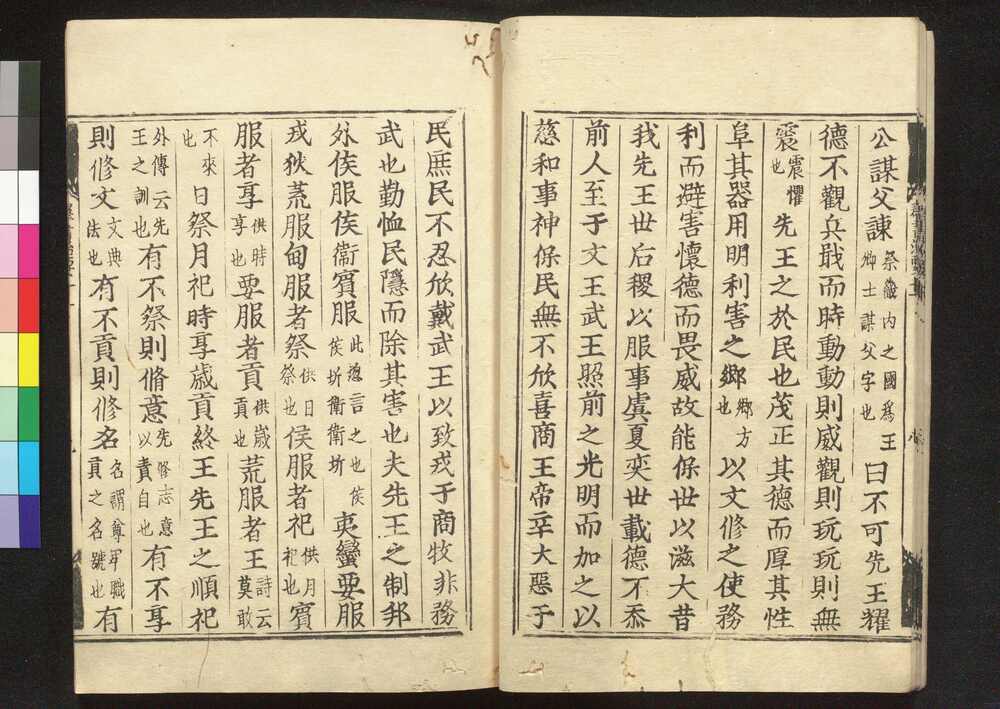 公謀父諫祭畿內之國爲王卿士謀父字也曰不可先王耀
德不觀兵戢而時動動則威觀則玩玩則無
震震懼也先王之於民也茂正其德而厚其性
阜其器用明利害之鄉鄉方也以文修之使務
利而避害懷德而畏威故能保世以滋大昔
我先王世后稷以服事虞夏奕世載德不忝
前人至于文王武王照前之光明而加之以
慈和事神保民無不欣喜商王帝辛大惡于
民庶民不忍欣戴武王以致戎于商牧非務
武也勤恤民隱而除其害也夫先王之制邦
外侯服侯衛賓服此總言之也侯侯圻衛衛圻夷蠻要服
戎狄荒服甸服者祭供日祭也侯服者祀供月祀也賓
服者享供時享也要服者貢供歲貢也荒服者王詩云莫敢
不來也日祭月祀時享歲貢終王先王之順祀
外傳云先王之訓也有不祭則脩意先修志意以責自也有不享
則修文文典法也有不貢則修名名謂尊卑職貢之名號也有